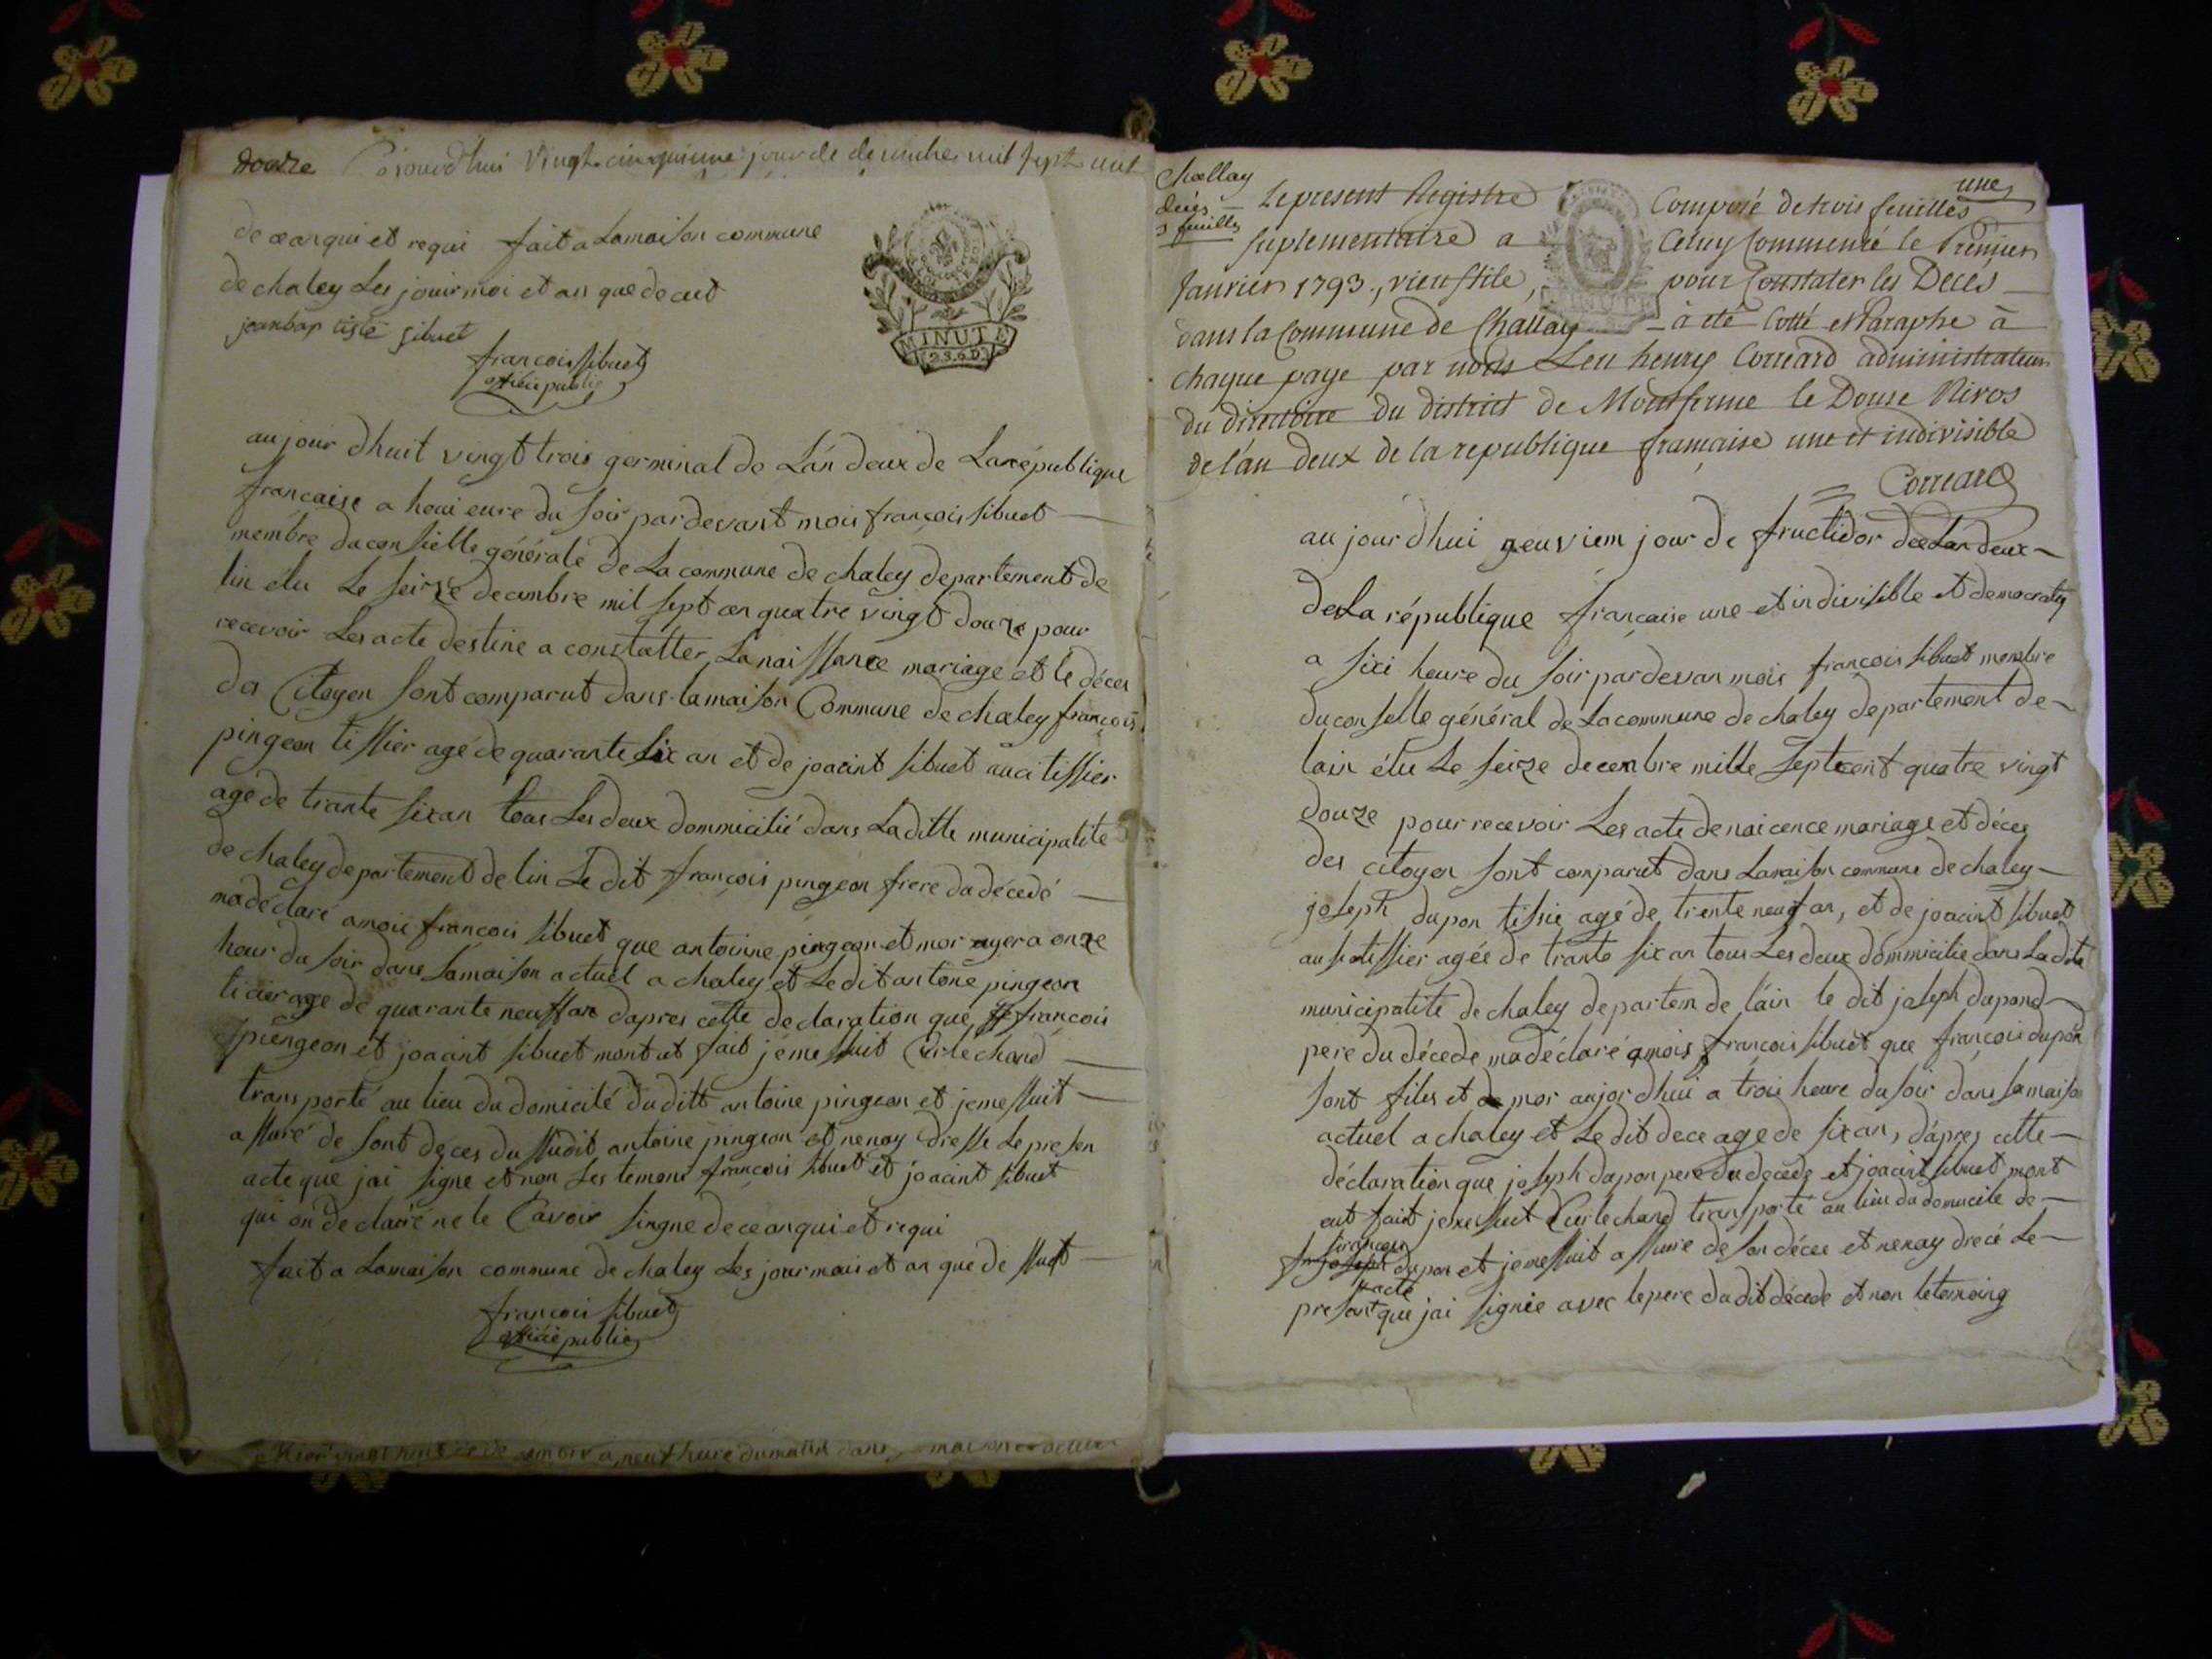 douze Cejourdhui Vingt cinquieme jour de decembre mil sept cent
de ce anqui et requi fait a Lamaison commune
de chaley Les jour moi et an que decut
jeanbaptiste sibuet
francois sibuet
officie public
MINUTE
2 S. 6 D.
aujour dhuit vingt trois germinal de Lán deux de La république
francaise a houi eure du soir pardevant moii françois sibuet
membre du conseille générale de La commune de chaley departement de
lin élu Le seirze decembre mil sept cen quatre vingt douze pour
recevoir Les acte destine a constatter La naissance mariage et le décer
des Citoyen sont comparut dans la maison Commune de chaley françois
pingeon tissier agé de quarante six an et de joacint sibuet auci tissier
agé de trante six an tous Les deux dommicilié dans La ditte municipalité
de chaley departement de lin Le dit françois pingeon frere du décedé
madéclaré amoii francois sibuet que antoinne pingeon et mor ayer a onze
heur du soir dans samaison actuel a chaley et Le dit antone pingeon
ticier age de quarante neuff an dapres cette declaration que françois
pingeon et joacint sibuet mont ut fait jemessuit sur le chand
transporté au lieu du domicilé du ditt antoine pingeon et jemessuit
assuré de sont déces dussudit antoine pingeon et nenay dresse Le presen
acte que jai signe et non Les temons francois sibuet et joacint sibuet
qui on declaré ne le savoir singne de ce anqui et requi
fait a Lamaison commune de chaley Les jour mois et an que dessut
francois sibuet
officie public
Hier vingt huit decembre a neuf heure dumatin dans maison actuel
Challay
décès
3 feuilles
une
Le present Registre Composé de trois feuilles
suplementaire a Celuy Commencé le Premier
Janvier 1793., vieu stile, pour Constater les Decès
MINUTE
dans la Commune de Challay à eté Cotté et Paraphe à
chaque page par nous Leu henry Correard administrateur
du directoire du district de Montferme le Douse Nivos
de l'an deux de la republique française une et indivisible
Correard
aujourdhui neuviem jour de fructidor de Lan deux
de La république francaise une et indivisible et democratiq
a sixi heure du soir pardevan mois françois sibuet membre
du conselle général de La commune de chaley departement de
lain élu Le seirze decembre mille septcent quatre vingt
douze pour recevoir Les acte de naicence mariage et déces
des citoyen sont comparut dans Lamaison commune de chaley
joseph dupon tissie agé de trente neuf an, et de joacint sibuet
ausi tissier agée de trante six an tous Les deux dommicilie dans La dite
municipalite de chaley departem de l'ain le dit joseph dupond
pere du décede madéclaré amois françois sibuet que françoi dupon
sont files et mor aujordhui a trois heure du soir dans samaiso
actuel a chaley et Le dit dece age de six an, dápres cette
déclaration que joseph dupon pere du decede et joacint sibuet mont
eut fait jemessuit sur le chand transporté au lieu du domicile de
françois
joseph dupon et jemessuit assuré de son déces et nenay drecé Le
acte
presant que jai signée avec le pere du dit décede et non le temoing